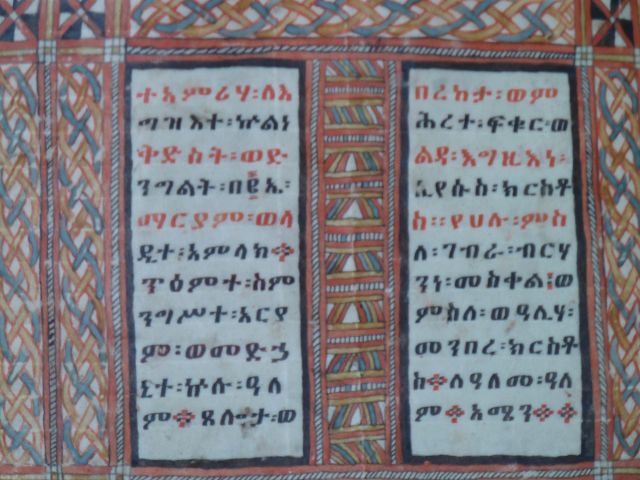 ተአምሪሃ፡ለእ
ግዝእተ፡ኵልነ
ቅድስት፡ወድ
ንግልት፡በ፪ኤ፡
ማርያም፡ወላ
ዲተ፡አምላክ፨
ጥዕምተ፡ስም
ንግሥተ፡አርያ
ም፡ወመድኃ
ኒተ፡ኵሉ፡ዓለ
ም፨ጸሎታ፡ወ
በረከታ፡ወም
ሕረተ፡ፍቁር፡ወ
ልዳ፡እግዚእነ፡
ኢየሱስ፡ክርስቶ
ስ፡፡የሀሉ፡ምስ
ለ፡ገብራ፡ብርሃ
ንነ፡መስቀል፤ወ
ምስለ፡ወዓሊሃ፡
መንበረ፡ክርስቶ
ስ፨ለዓለመ፡ዓለ
ም፨አሜን፨፨